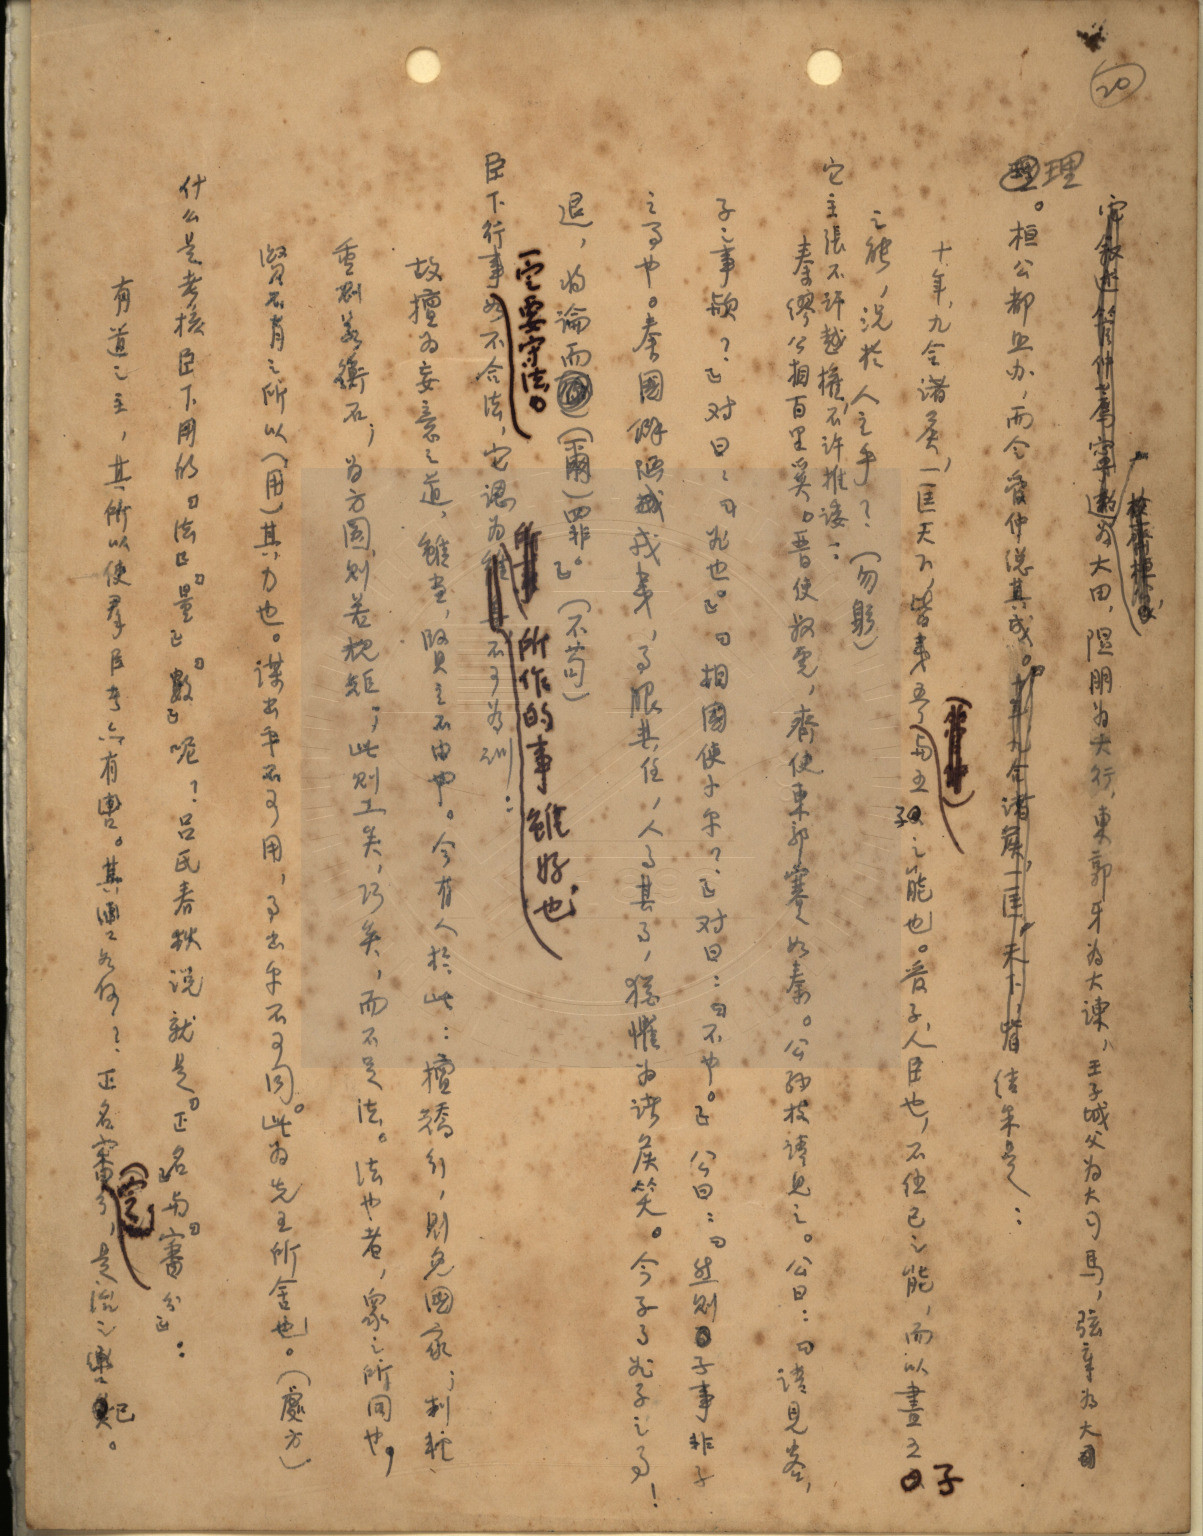 20
它叙述管仲薦甯遫为大田，隰朋为大行，東郭牙为大諫，王子城父为大司馬，弦章为大
理
理。桓公都照办，而令管仲总其成。十年九合諸侯，一匡天下，皆結果是：
十年，九合諸侯，一匡天下，皆夷吾与五子之能也。管子，人臣也，不任己之能，而以盡五子
之能，況於人主乎？（勿躬）
它主張不許越權，不許推諉：
秦繆公相百里奚。晋使叔虎，齊使東郭蹇如秦。公孫枝請見之。公曰：「請見客，
子之事歟？」对曰：「非也。」「相國使子乎？」对曰：「不也。」公曰：「然則子事非子
之事也。秦國僻陋戎夷，事服其任，人事其事，猶懼为諸侯笑。今子事非子之事！
退，将論而（爾）罪。」（不苟）
一定要守法。
臣下行事如不合法，它認为不可为訓：
所作的事雖好，也
故擅为妄意之道，雖當，賢主不由也。今有人於此：擅矯行，則免國家；利輕
重則若衡石；为方圆則若規矩；此則工矣，巧矣，而不足法。法也者，眾之所同也，
賢不肖之所以（用）其力也。謀出乎不可用，事出乎不可同，此为先王所舍也。（處方）
什么是考核臣下用的「法」「量」「數」呢？吕氏春秋説就是「正名」与「審分」：
有道之主，其所以使羣臣者亦有轡。其轡如何？正名審分，是治之轡已。
（定）